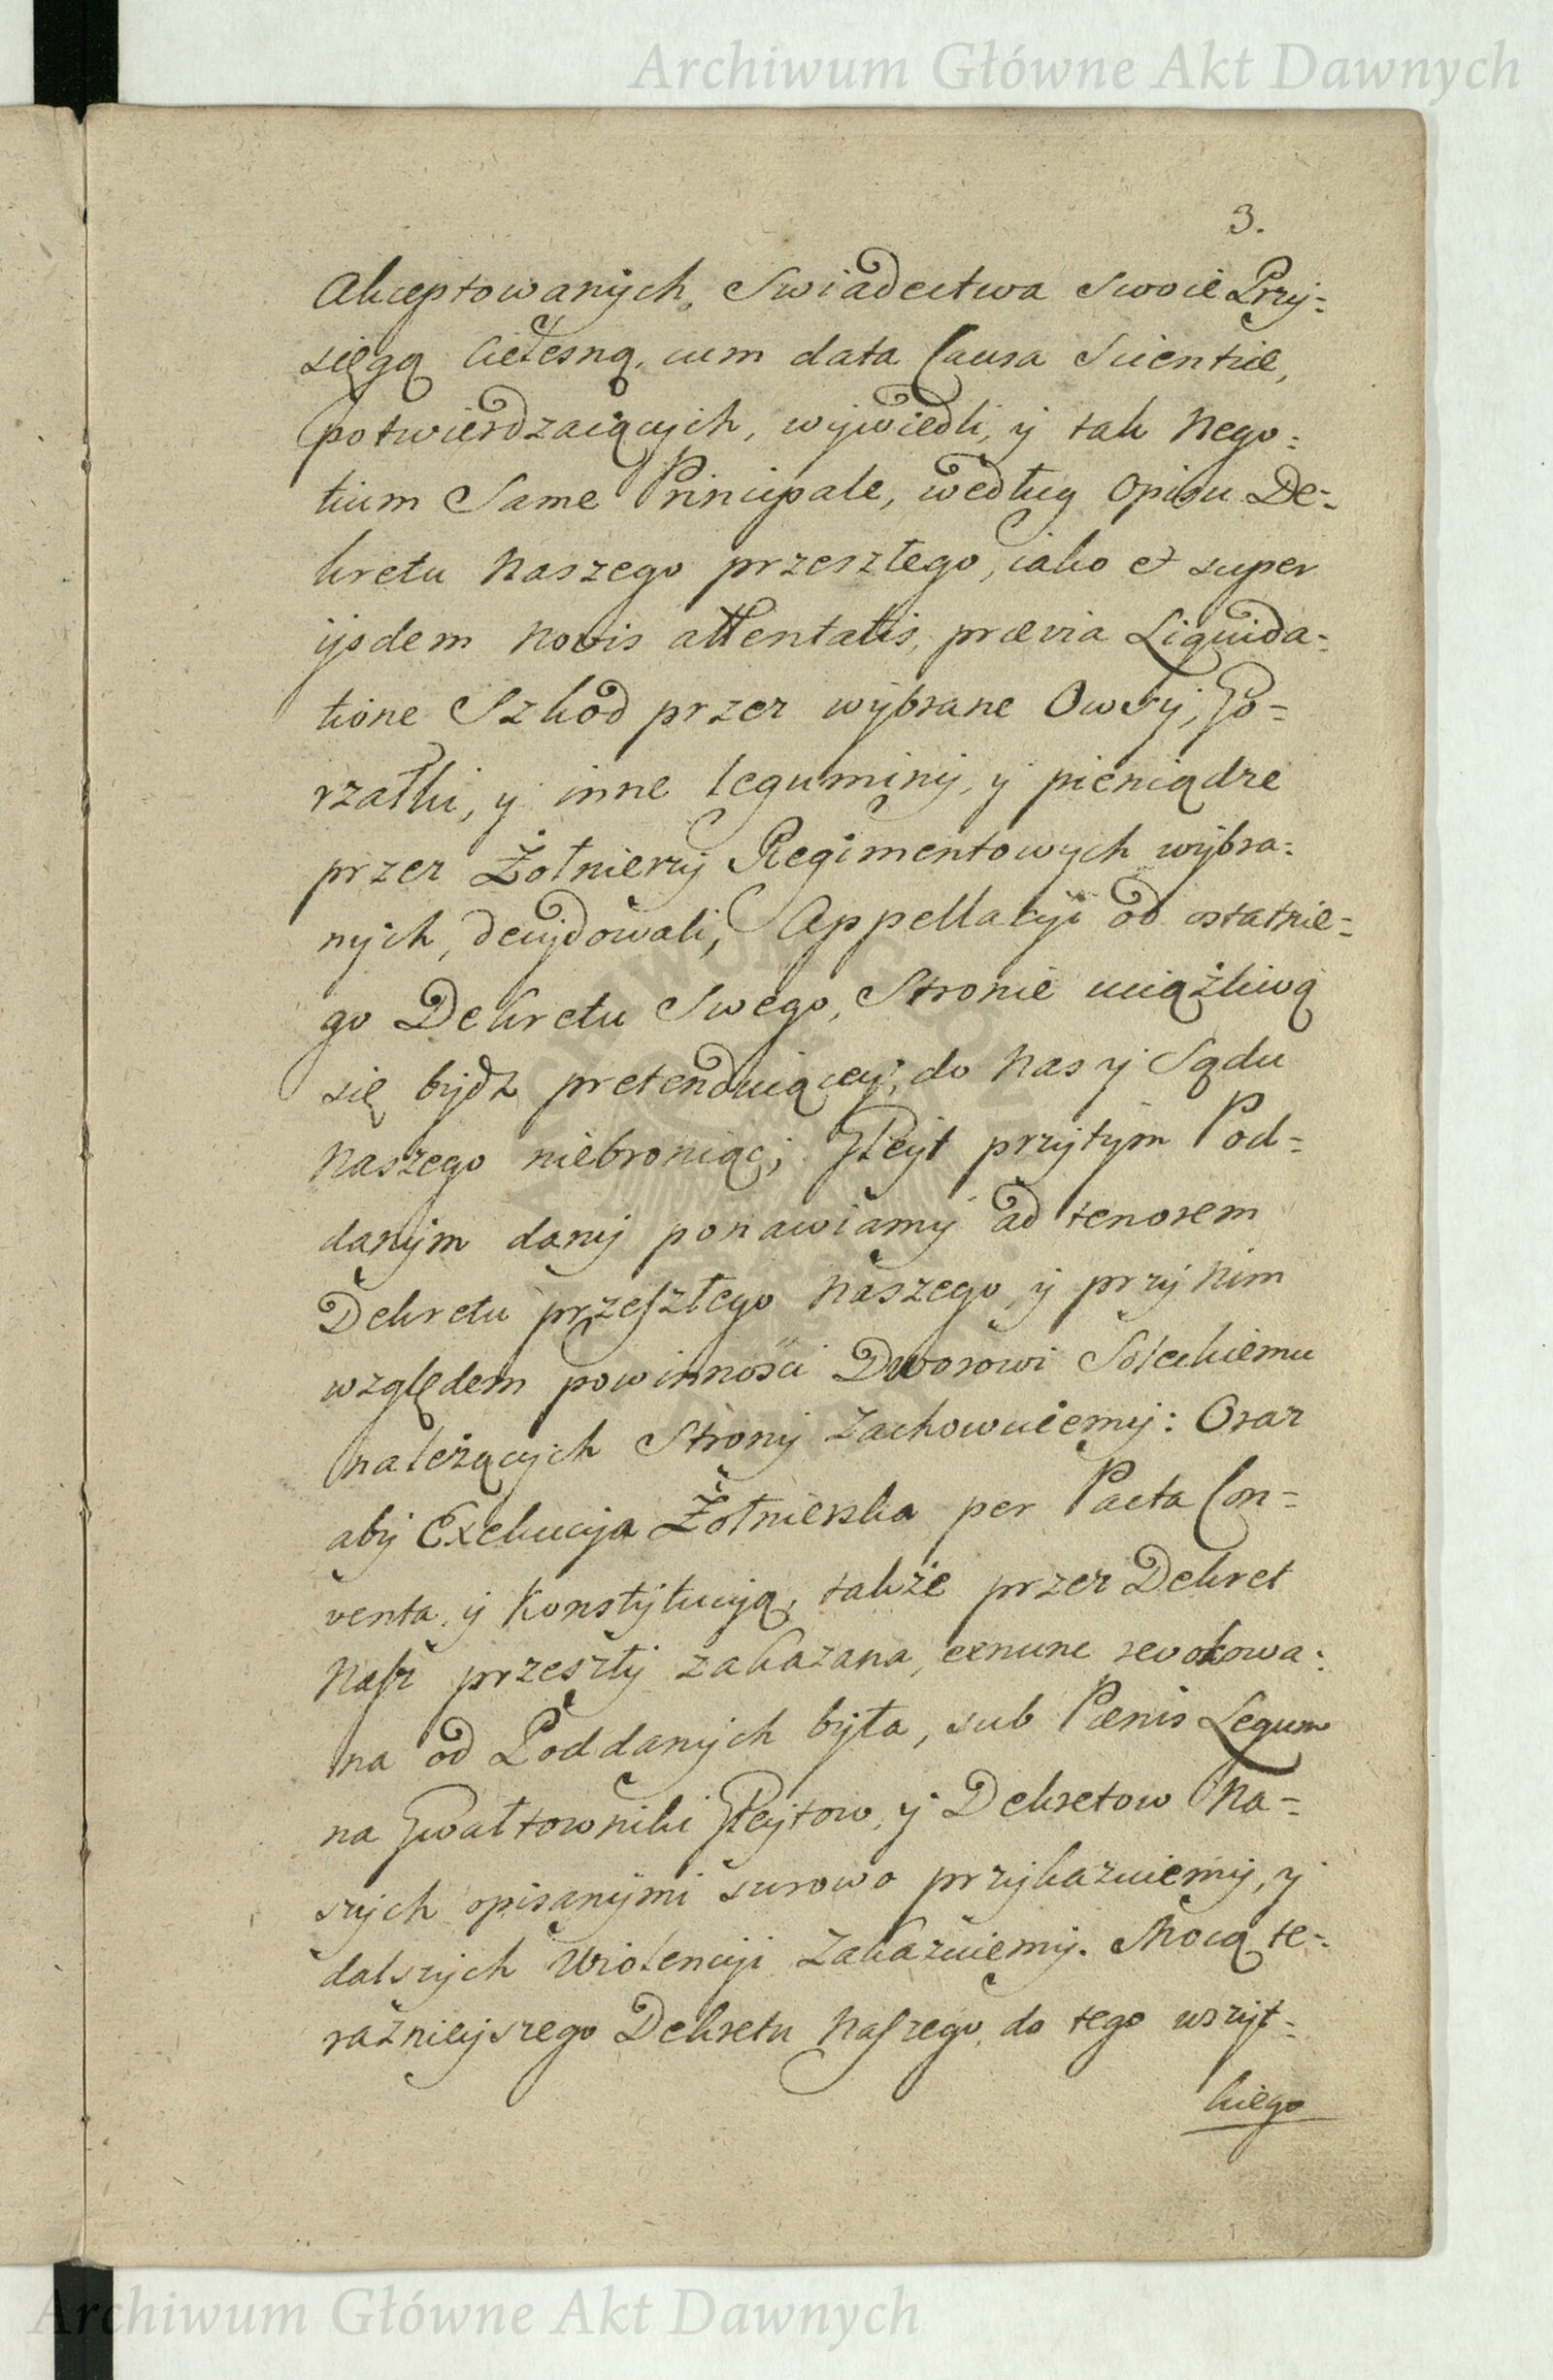 Archiwum Główne Akt Dawnych
3.
Akceptowanych, Swiadectwa Swoie Przy=
sięgą Cielesną, cum data Causa Scientiæ,
potwierdzaiących, wywiedli, y tak Nego=
tium Same Principale, według Opisu De=
kretu Naszego przeszłego, iako et super
ijsdem Novis attentatis, prævia Liquida=
tione Szkod przez wybrane Owsy, Go=
rzałki, y inne leguminy, y pieniądze
przez Żołnierzy Regimentowych wybra=
nych, decydowali, Appellacyi od ostatnie=
go Dekretu Swego, Stronie uciążliwą
się bydź pretenduiącey, do Nas y Sądu
Naszego niebroniąc; Gleyt przytym Pod=
danym dany ponawiamy ad tenorem
Dekretu przeszłego Naszego, y przy Nim
względem powinności Dworowi Soleckiemu
należących Strony zachowuiemy: Oraz
aby Exekucya Żołnierska per Pacta Con=
venta, y Konstytucyą, także przez Dekret
Nasz przeszły zakazana, exnunc rewokowa=
na od Poddanych była, sub Pænis Legum
na Gwałtowniki Gleytow, y Dekretow Na=
szych opisanymi surowo przykazuiemy, y
dalszych Wiolencyi Zakazuiemy. Mocą te=
raznieyszego Dekretu Naszego, do tego wszyt=
kiego
Archiwum Główne Akt Dawnych